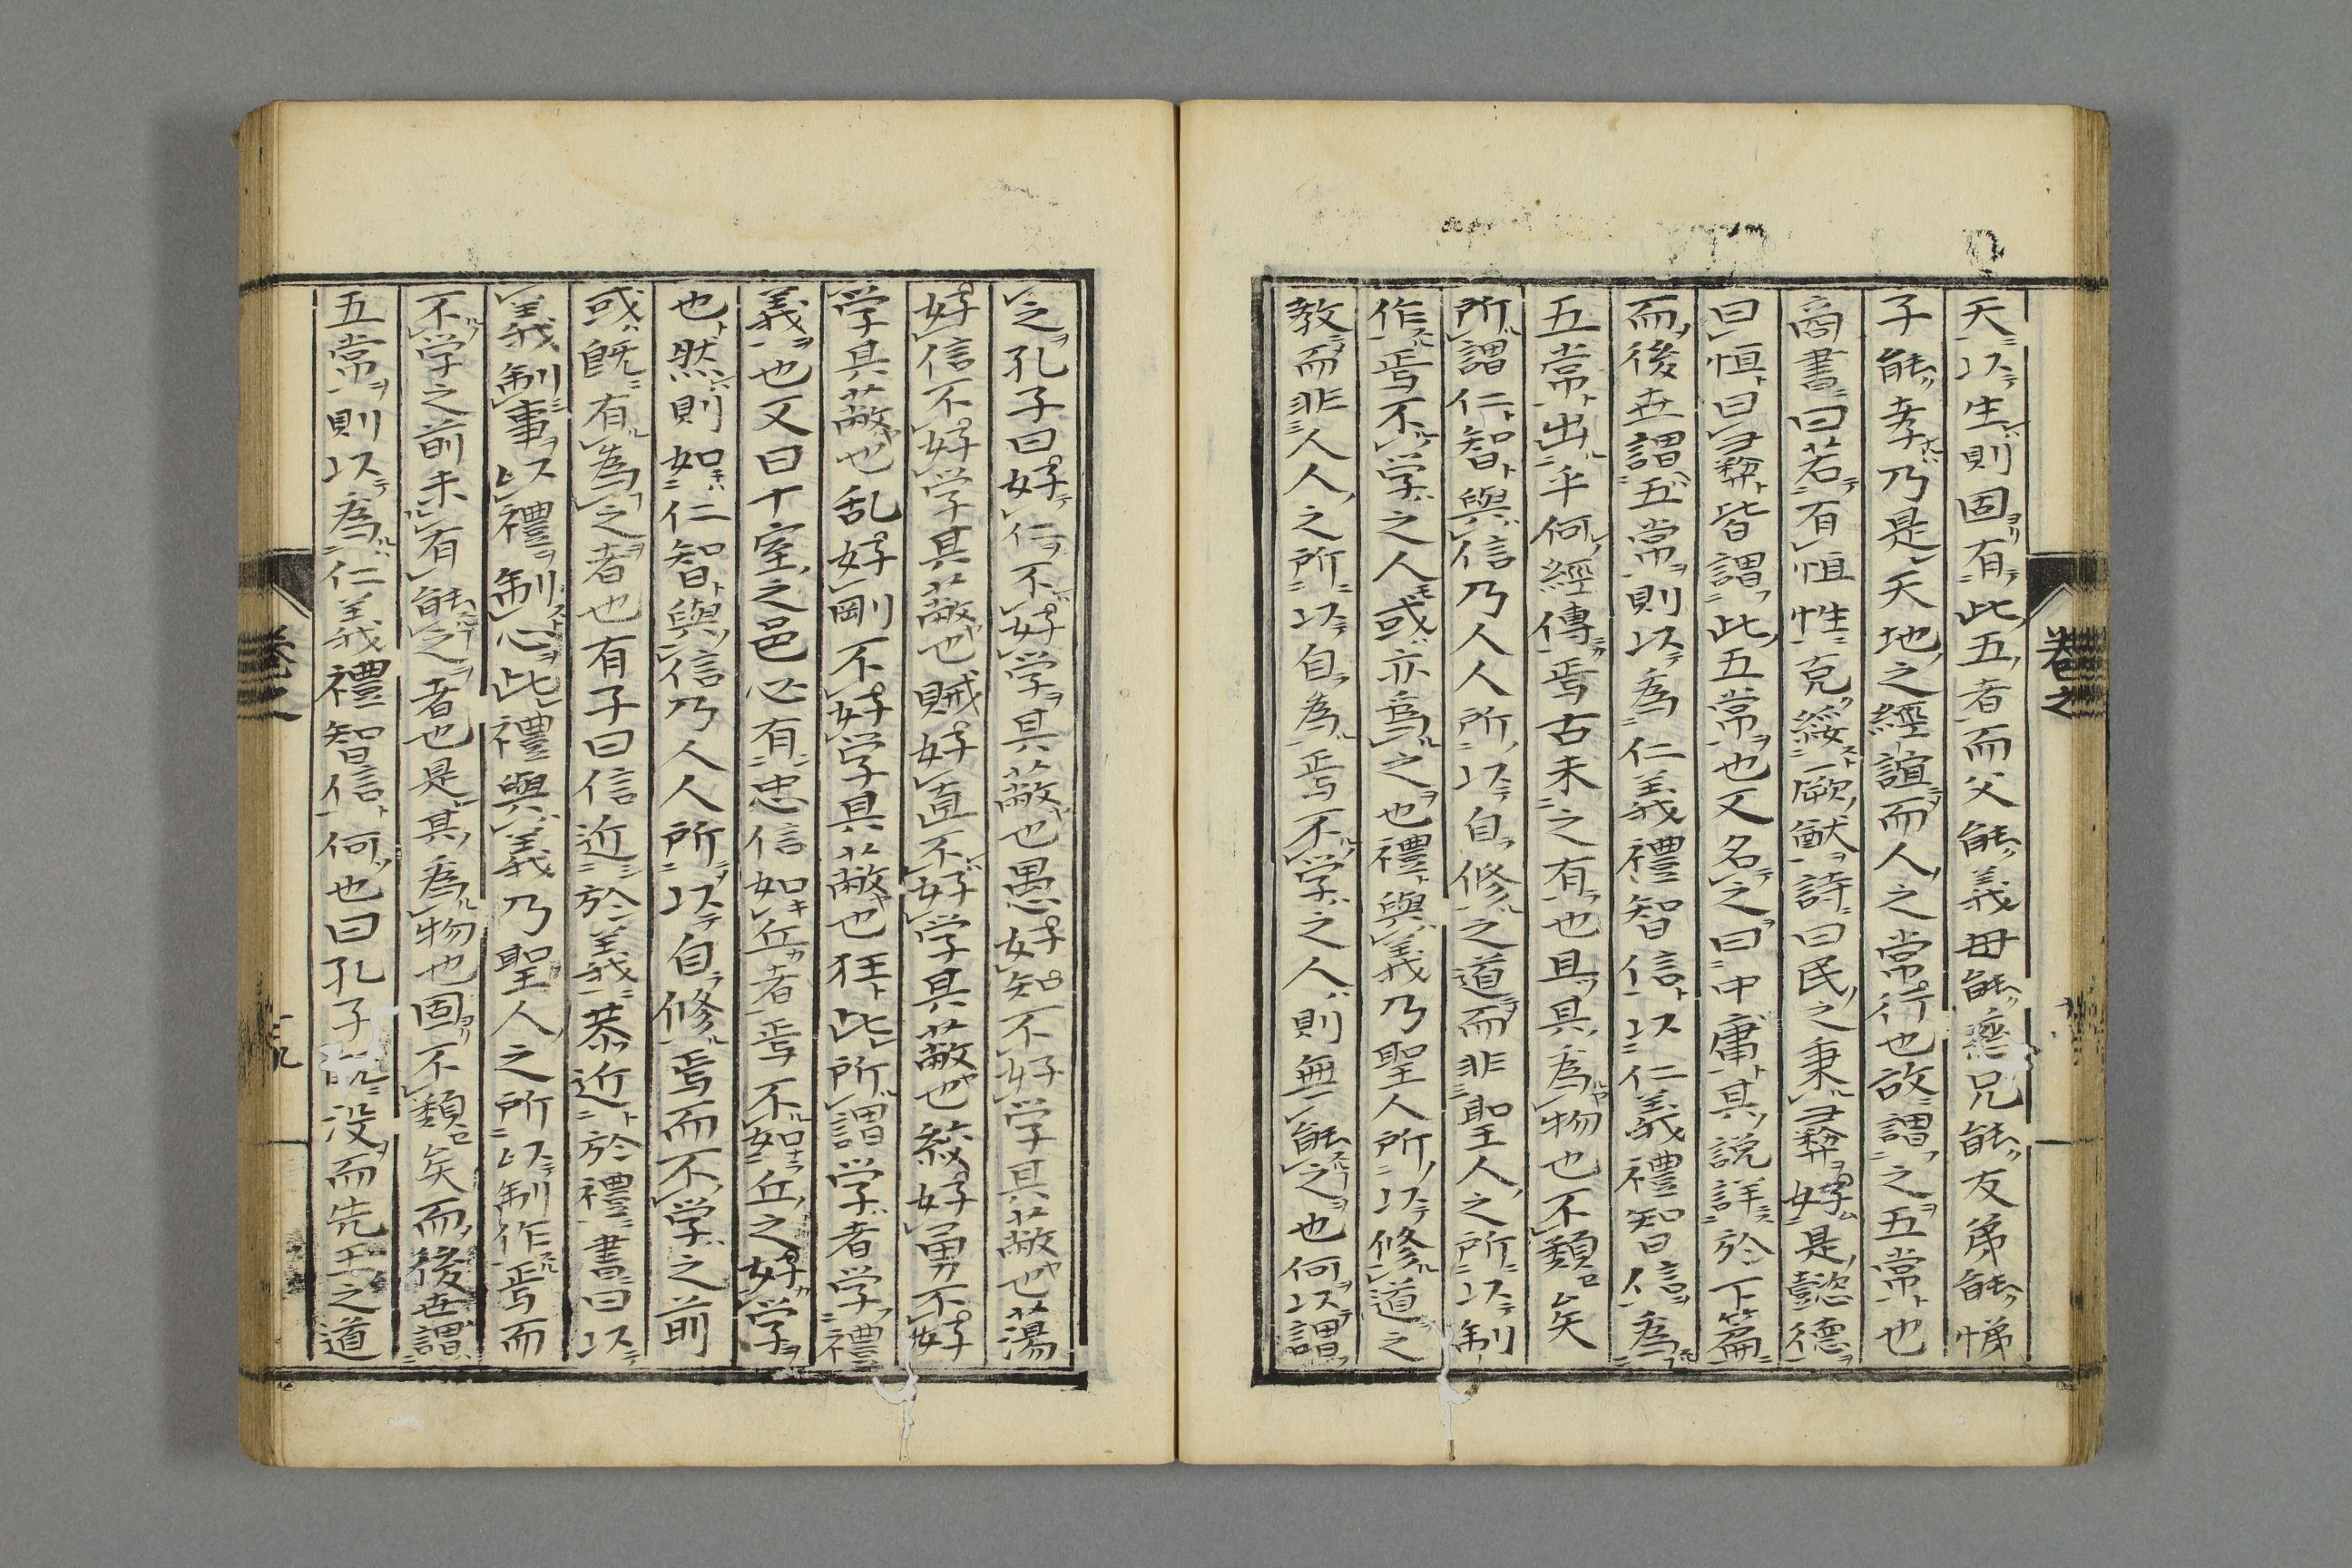 天以生則固有此五者而父能義母能慈兄能友弟能悌
子能孝乃是天地之經誼而人之常行也故謂之五常也
商書曰若有恒性克綏厥猷詩曰民之秉彛好是懿德
曰恒曰彛皆謂此五常也又名之曰中庸其説詳於下篇
而後世謂五常則以為仁義禮智信以仁義禮智信為
五常出乎何經傳焉古未之有也且其為物也不類矣
所謂仁智與信乃人人所以自修之道而非聖人之所以制
作焉不学之人或亦為之也禮與義乃聖人所以修道之
教而非人人之所以自為焉不学之人則無能之也何以謂
之孔子曰好仁不好学其蔽也愚好知不好学其蔽也蕩
好信不好学其蔽也賊好直不好学其蔽也絞好勇不好
学其蔽也乱好剛不好学其蔽也狂此所謂学者学禮
義也又曰十室之邑必有忠信如丘者焉不如丘之好学
也然則如仁智與信乃人人所以自修焉而不学之前
或既有為之者也有子曰信近於義恭近於禮書曰以
義制事以禮制心此禮與義乃聖人之所以制作焉而
不学之前未有能之者也是其為物也固不類矣而後世謂
五常則以為仁義禮智信何也曰孔子既没而先王之道
卷之
卷之